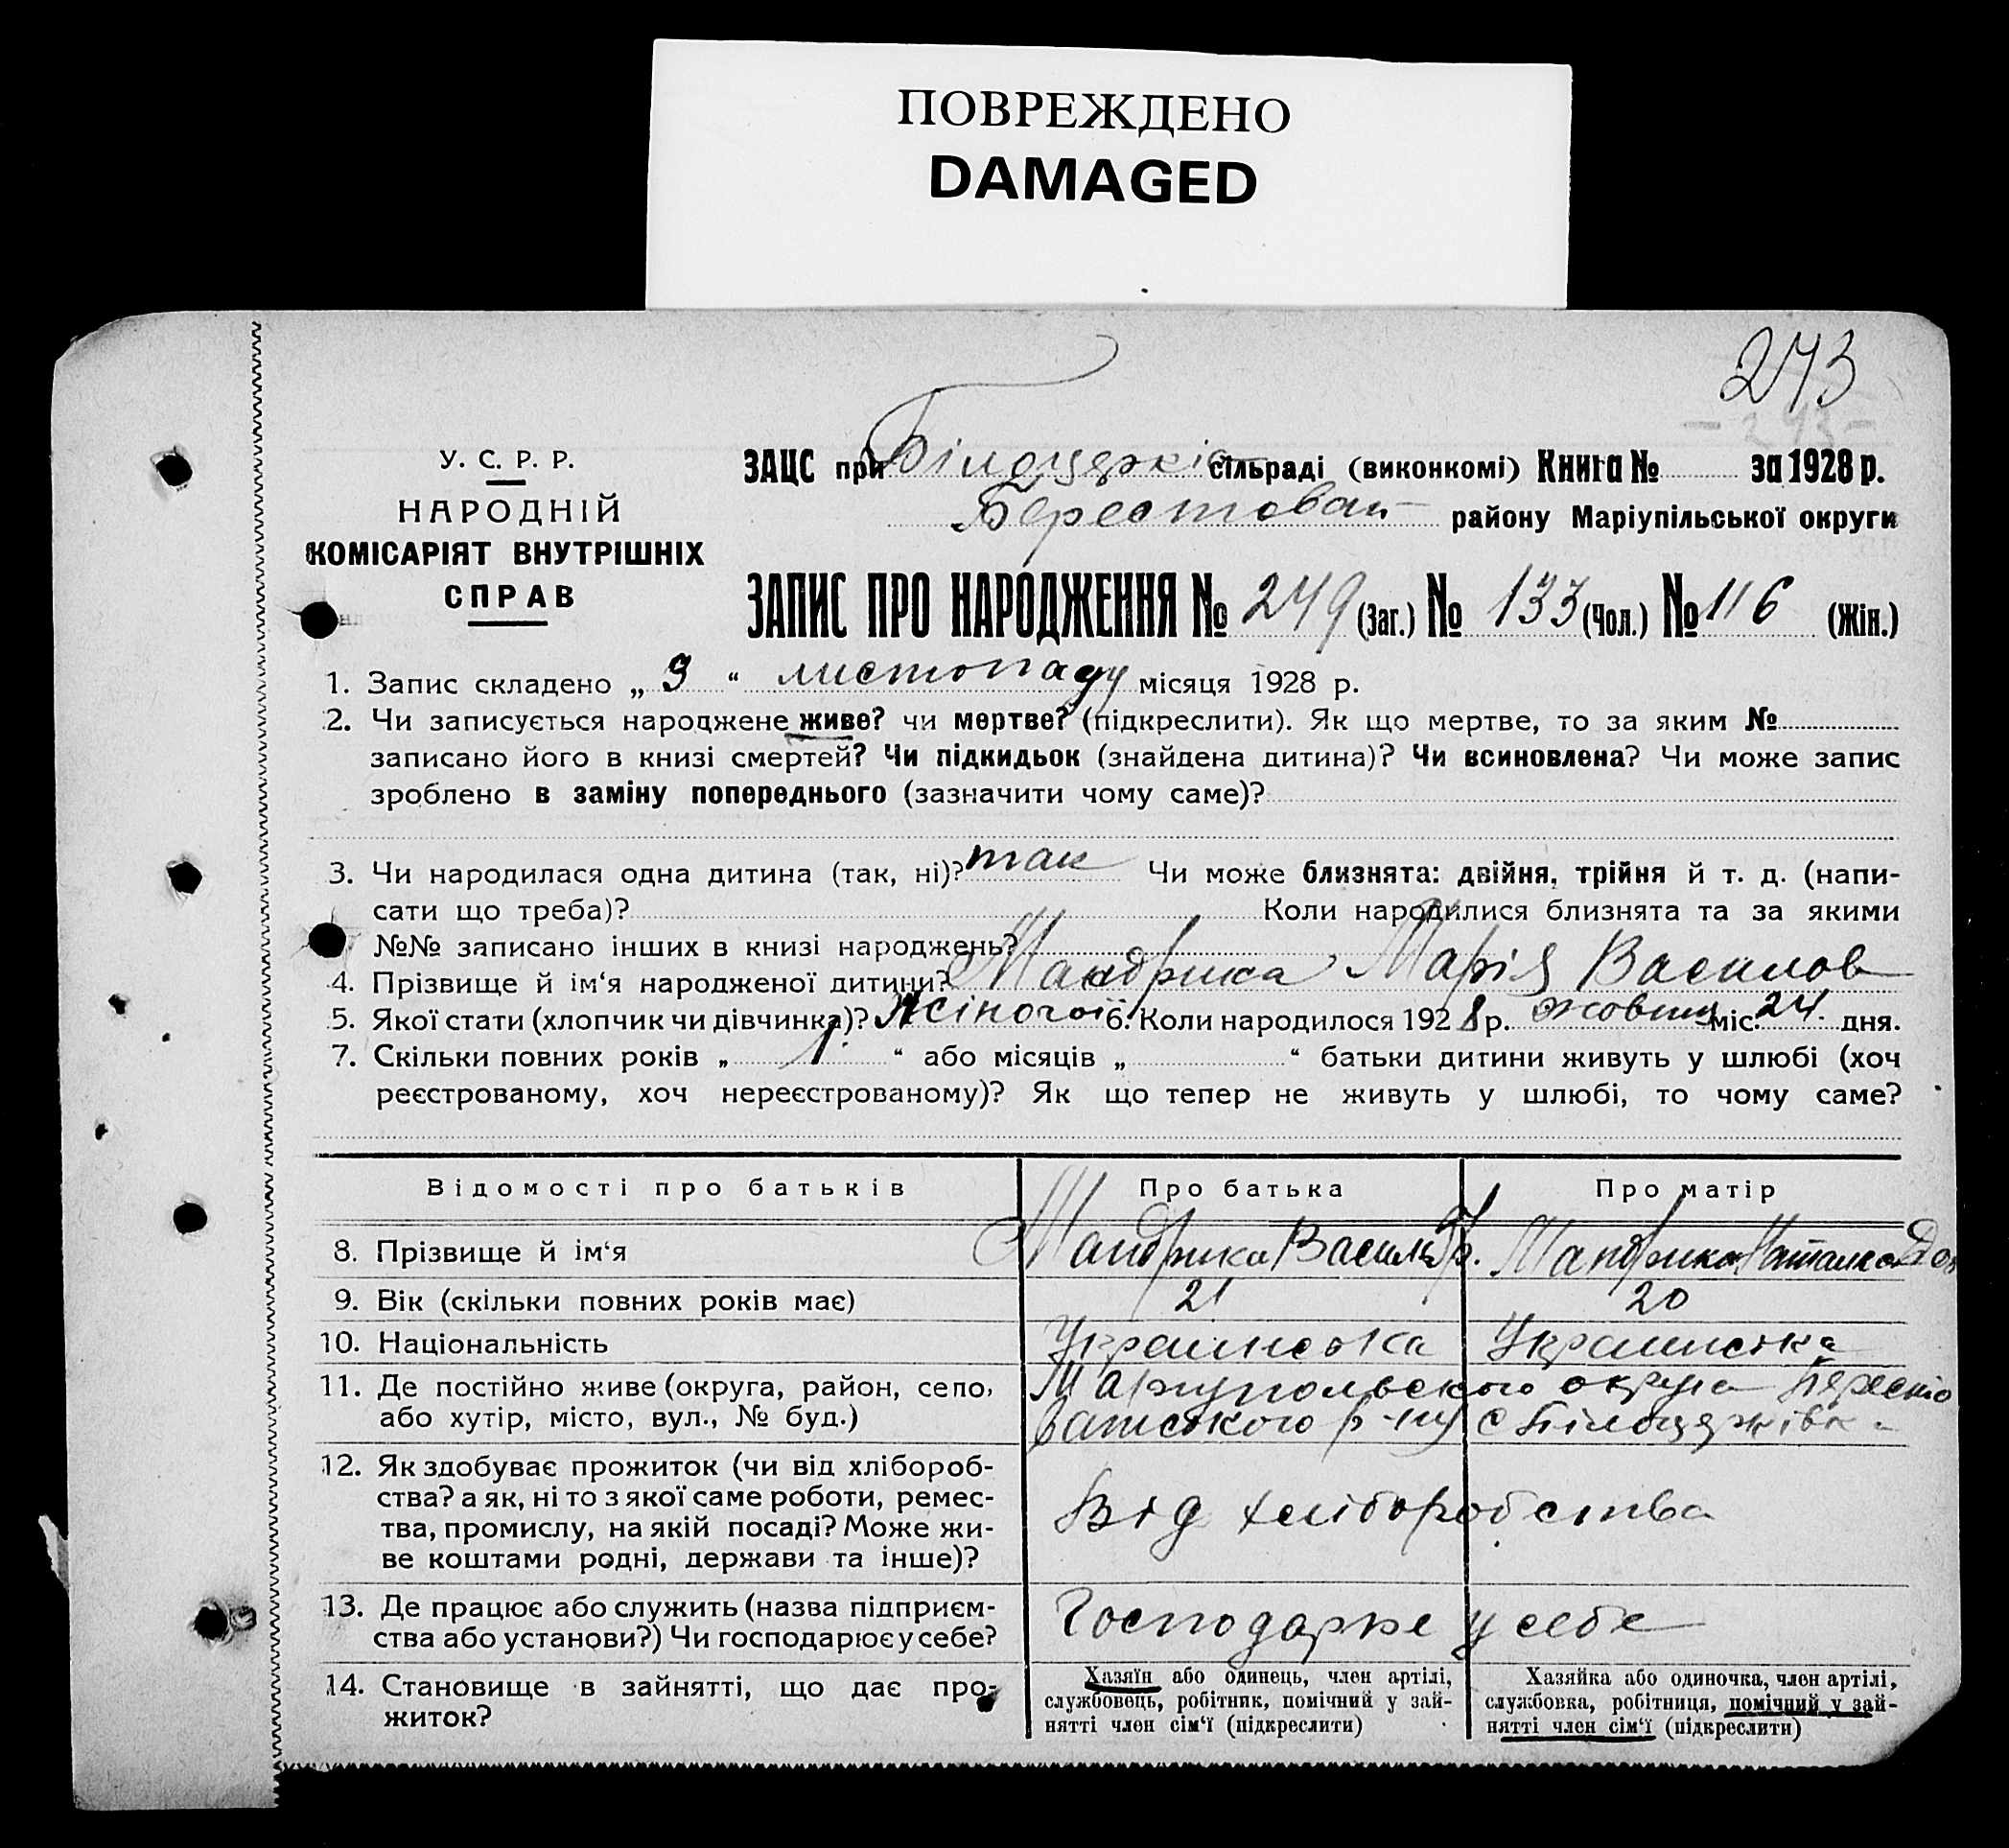 ПОВРЕЖДЕНО
DAMAGED
273
У. С. Р. Р.
НАРОДНІЙ
КОМІСАРІЯТ ВНУТРІШНІХ
СПРАВ
ЗАЦС при Білоцерків сільраді (виконкомі) Книга № за 1928 р.
Берестован району Маріупільської округи
ЗАПИС ПРО НАРОДЖЕННЯ № 249 (Заг.) № 133 (Чол.) № 116 (Жін.)
1. Запис складено „ 9 “ листопаду місяця 1928 р.
2. Чи записується народжене живе? чи мертве? (підкреслити). Як що мертве, то за яким №
записано його в книзі смертей? Чи підкидьок (знайдена дитина)? Чи всиновлена? Чи може запис
зроблено в заміну попереднього (зазначити чому саме)?
3. Чи народилася одна дитина (так, ні)? так Чи може близнята: двійня, трійня й т. д. (напи-
сати що треба)? Коли народилися близнята та за якими
№№ записано інших в книзі народжень?
4. Прізвище й ім‘я народженої дитини? Мандрика Марія Васи́лов
5. Якої стати (хлопчик чи дівчинка)? Жіночої 6. Коли народилося 1928 р. жовтн міс. 24 дня.
7. Скільки повних років „ 1 “ або місяців „ “ батьки дитини живуть у шлюбі (хоч
реєстрованому, хоч нереєстрованому)? Як що тепер не живуть у шлюбі, то чому саме?
Відомості про батьків Про батька Про матір
8. Прізвище й ім‘я Мандрика Василь Мандрика Наталка
9. Вік (скільки повних років має) 21 20
10. Національність Украинська Украинська
11. Де постійно живе (округа, район, село, Маріупольского округа Бересто
або хутір, місто, вул., № буд.) ватського р-ну с Білоцерківка
12. Як здобуває прожиток (чи від хлібороб-
ства? а як, ні то з якої саме роботи, ремес-
тва, промислу, на якій посаді? Може жи-
ве коштами родні, держави та інше)?
Від хліборобства
13. Де працює або служить (назва підприєм-
ства або установи?) Чи господарює у себе?
Господарює у себе
14. Становище в зайнятті, що дає про-
житок?
Хазяїн або одинець, член артілі,
службовець, робітник, помічний у зай-
нятті член сім‘ї (підкреслити)
Хазяйка або одиночка, член артілі,
службовка, робітниця, помічний у зай-
нятті член сім‘ї (підкреслити)